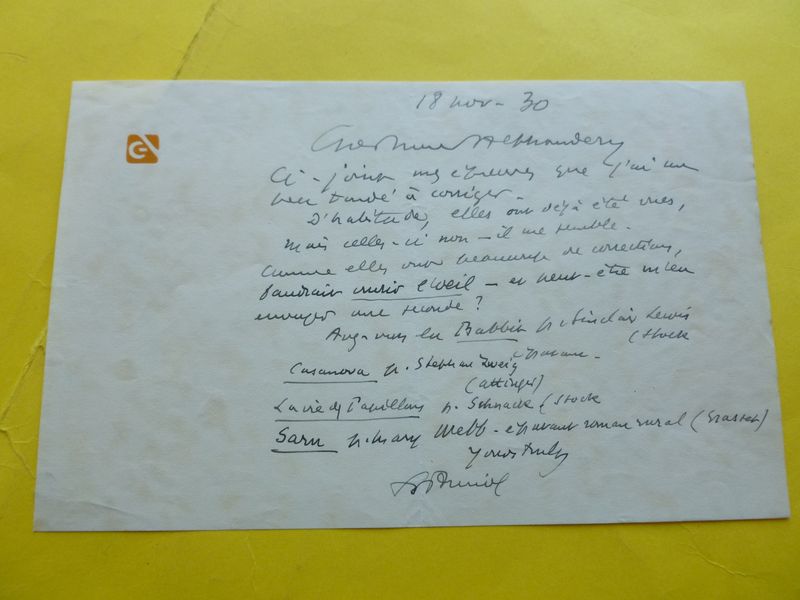 18 nov - 30
Ci-joint mes épreuves que j'ai un
peu tardé à corriger -
D'habitude, elles ont déjà été vues,
mais celles-ci non - il me semble.
Comme elles ont beaucoup de corrections,
faudrait ouvrir l'oeil - et peut-être m'en
envoyer une seconde ?
Avez-vous lu Babbit p. Sinclair Lewis
(Stock
épatant -
Casanova p. Stephan Zweig
(Attinger)
La vie des Papillons p. Schnack (Stock
Sarn p. Mary Webb - épatant roman rural (Grasset)
Yours truly